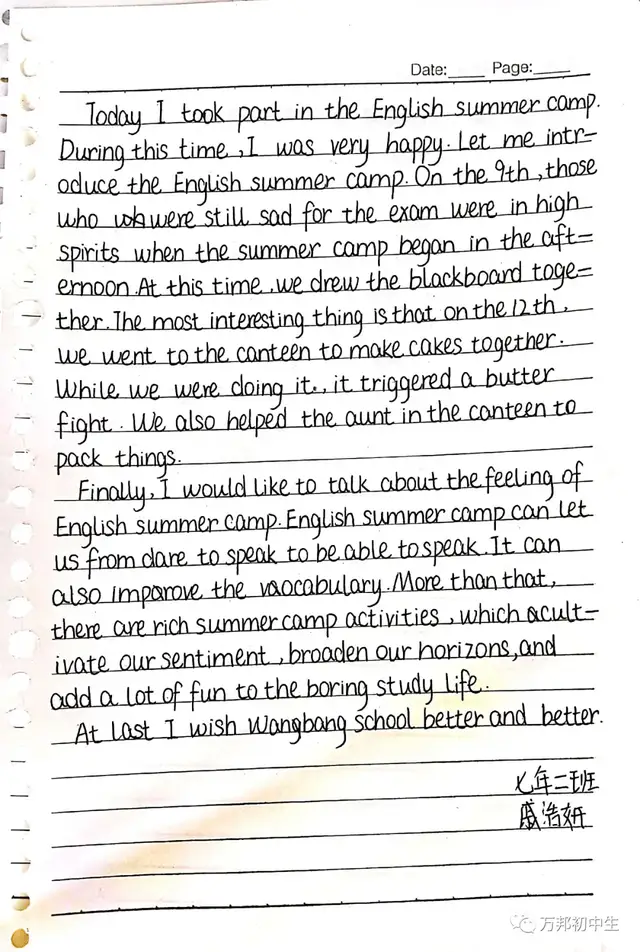 Date:____ Page:____
Today I took part in the English summer camp.
During this time, I was very happy. Let me intr-
oduce the English summer camp. On the 9th, those
who were still sad for the exam were in high
spirits when the summer camp began in the aft=
ernoon. At this time, we drew the blackboard toge=
ther. The most interesting thing is that on the 12th,
we went to the canteen to make cakes together.
While we were doing it, it triggered a butter
fight. We also helped the aunt in the canteen to
pack things.
Finally, I would like to talk about the feeling of
English summer camp. English summer camp can let
us from dare to speak to be able to speak. It can
also improve the vocabulary. More than that,
there are rich summer camp activities, which cult-
ivate our sentiment, broaden our horizons, and
add a lot of fun to the boring study life.
At last I wish Wangbang school better and better.
七年二班
戚浩妍
万邦初中生